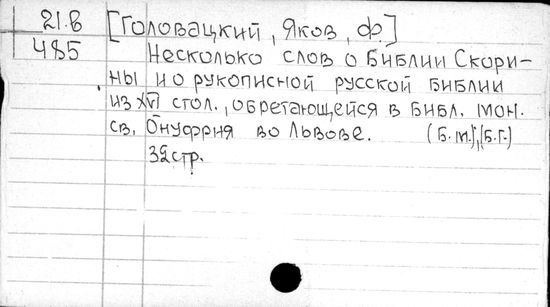 21.В [Головацкий, Яков, Ф.]
485 Несколько слов о Библии Скори-
ны и о рукописной русской библии
из XVI стол., обретающейся в библ. мон.
св. Онуфрия во Львове. (Б.м.), (Б.г.)
32стр.